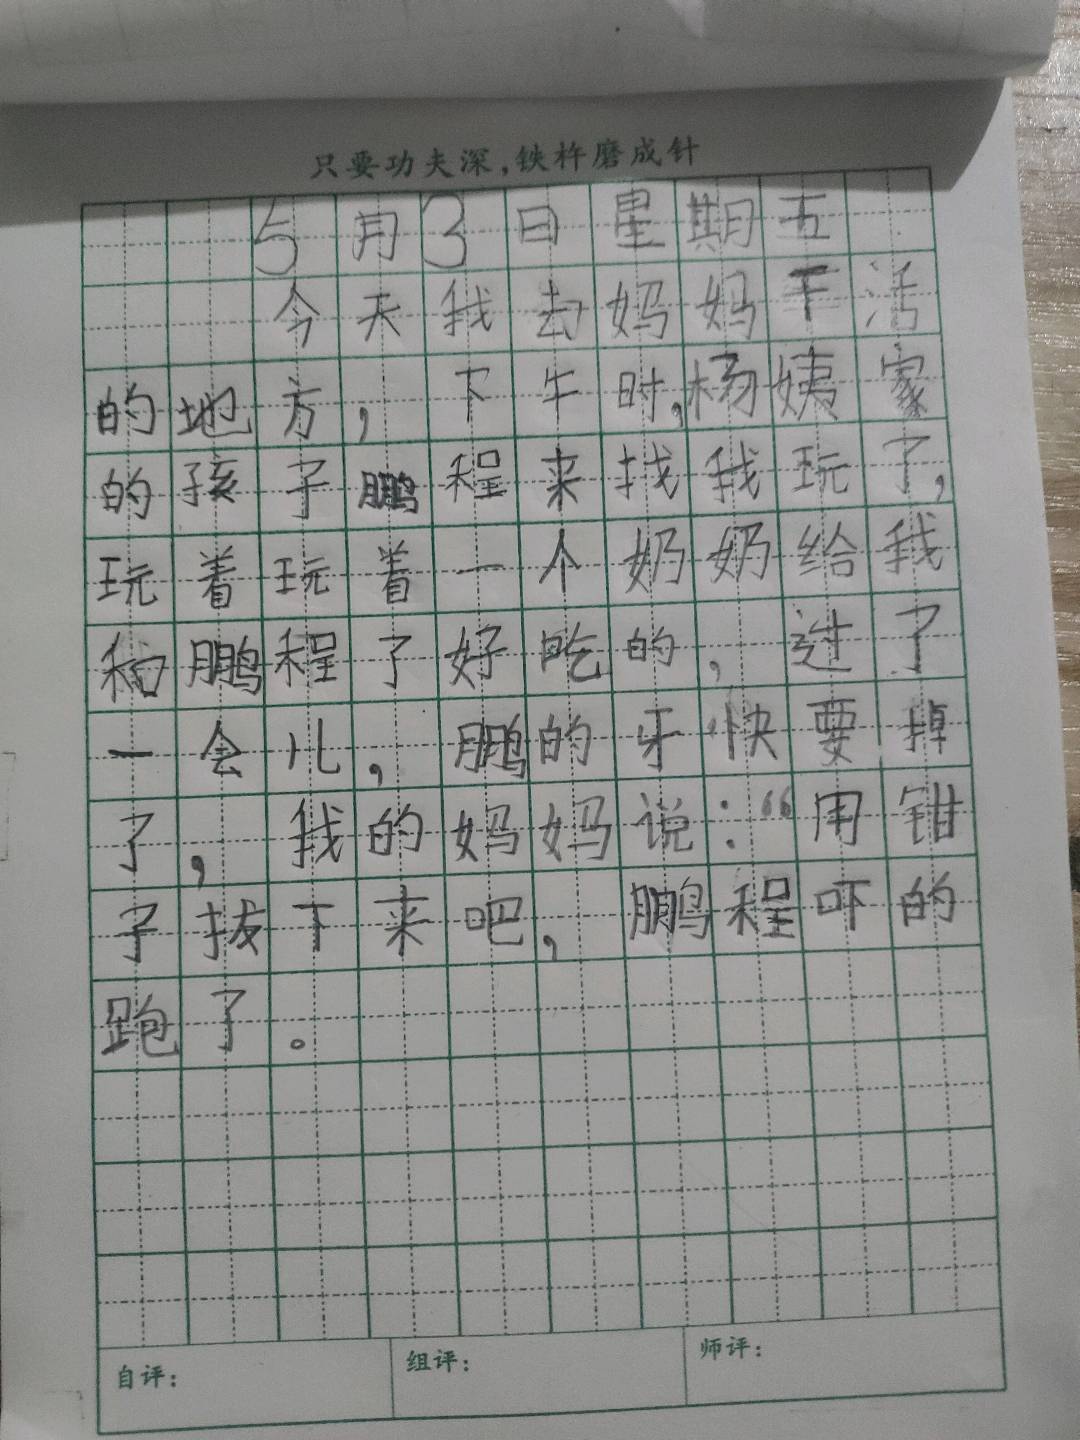 只要功夫深,铁杵磨成针
5月3日星期五
今天我去妈妈干活
的地方，下午时,杨姨家
的孩子鹏程来找我玩了,
玩着玩着一个奶奶给我
和鹏程了好吃的，过了
一会儿，鹏的牙快要掉
了，我的妈妈说：“用钳
子拔下来吧，鹏程吓的
跑了。
自评： 组评： 师评：